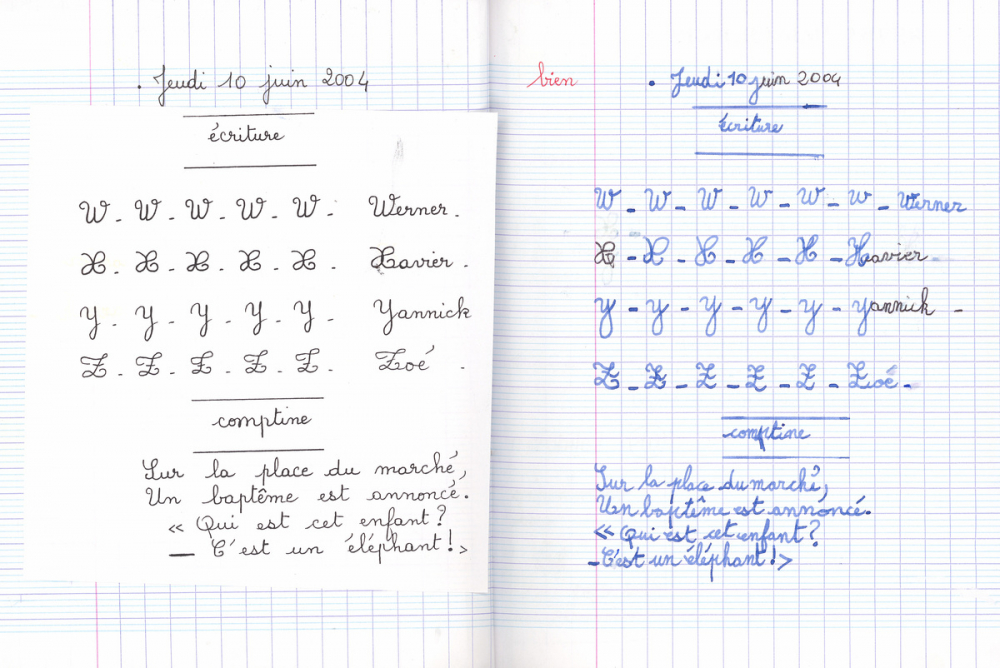 . Jeudi 10 juin 2004
écriture
W - W - W - W - W - Werner .
X . X - X - X - X . Xavier .
Y . Y - Y - Y - Y - Yannick
Z . Z - Z . Z - Z . Zoé .
comptine
Sur la place du marché,
Un baptême est annoncé.
« Qui est cet enfant ?
— C'est un éléphant ! >
bien
. Jeudi 10 juin 2004
écriture
W - W - W - W - W - W - Werner
X - X - X - X - X - Xavier -
Y - Y - Y - Y - Y - Yannick -
Z - Z - Z - Z - Z - Zoé -
comptine
Sur la place du marché,
Un baptême est annoncé.
« Qui est cet enfant ?
- C'est un éléphant ! >